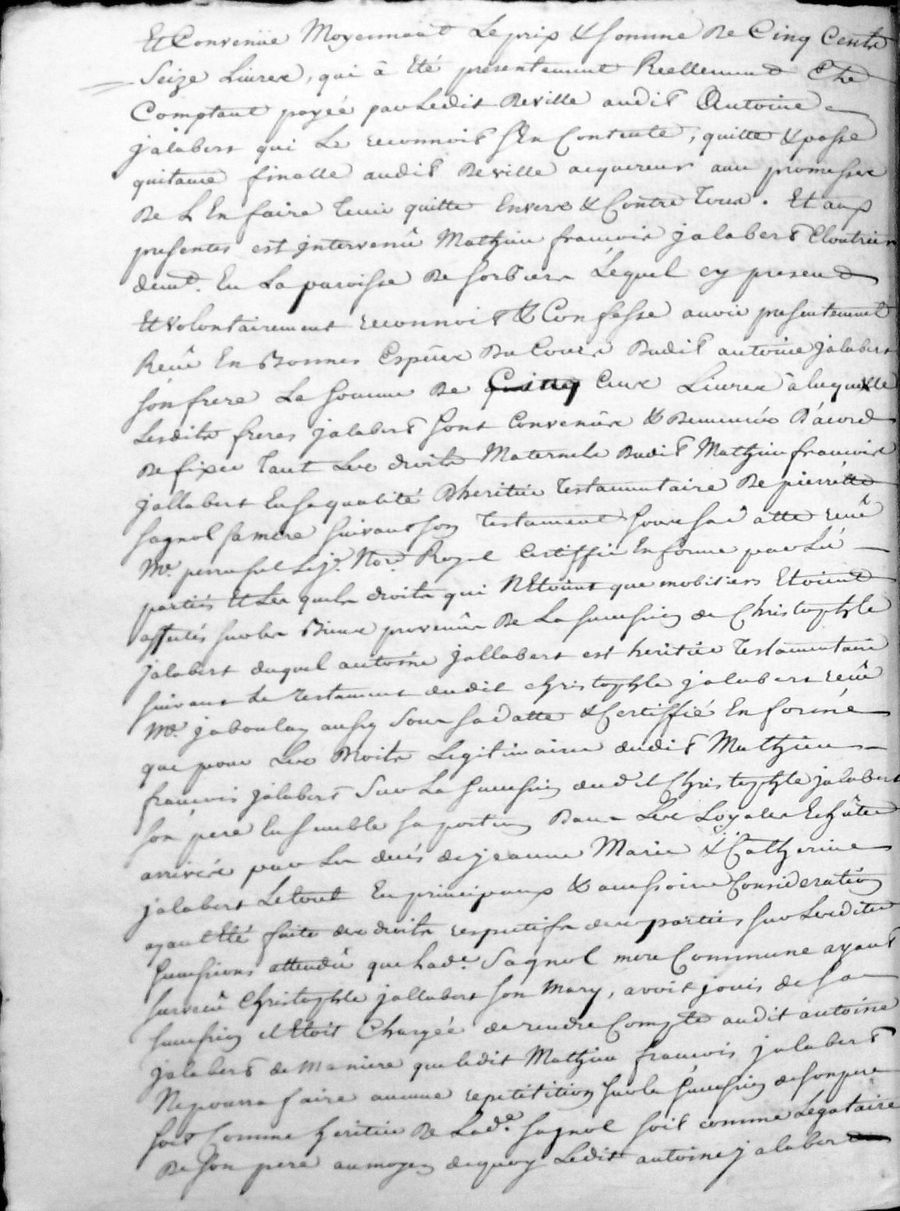 Et Convenüe Moyennant Le prix & somme De Cinq Cents
Seize Livres, qui à Eté présentement Reellement Et
Comptant payée par Ledit Deville audit Antoine
jalabert qui Le reconnoit s'En Contente, quitte & passe
quitance finalle audit Deville acquereur avec promesse
De L'En faire tenir quitte Envers & Contre Tous. Et aux
presentes est intervenû Mathieu francois jalabert Cloutrier
demt. En La paroisse De Sorbiers Lequel cy present
Et volontairement reconnoit & Confesse avoir presentement
Reçû En Bonnes Espéces Du Cours Dudit antoine jalabert
son frere La somme De Cents Livres à laquelle
Lesdits freres jalabert sont Convenûs & Demeurés D'acord
De fixer tant Les droits Maternels Dudit Mathieu francois
jallabert En sa qualité D'heritier Testamentaire De pierrette
sagnol sa mere suivant son Testament sous sa datte reçû
Me. Nore. Royal Certiffié En forme par Les
parties Et Les quels droits qui N'Etoint que mobiliers Etoient
affectés sur les Biens provenûs De La succession de Christophle
jalabert duquel antoine jallabert est heritier Testamentaire
suivant Le Testament dudit christophle jalabert reçû
Me. jaboulay aussy sous sa datte & Certiffié En forme
que pour Les Droits Legitimaires dudit Mathieu
francois jalabert Sur La succession dudit Christophle jalabert
son pere Ensemble sa portion Dans Les Loyales Echûtes
arrivées par Les decés de jeanne Marie & Catherine
jalabert Le tout En principaux & accessoires Consideration
ayant Eté faite des droits respectifs des parties sur Lesdites
successions attendû que lade. Sagnol mere Commune ayant
survecû Christophle jallabert son Mary, avoit jouis de sa
succession et Etoit Chargée de rendre Compte audit antoine
jalabert de Maniere que ledit Mathieu francois jalabert
Ne pourra faire aucune repetitition sur la succession de son pere
soit Comme heritier De Lade. sagnol soit comme Legataire
De son pere au moyen de quoy Ledit antoine jalabert